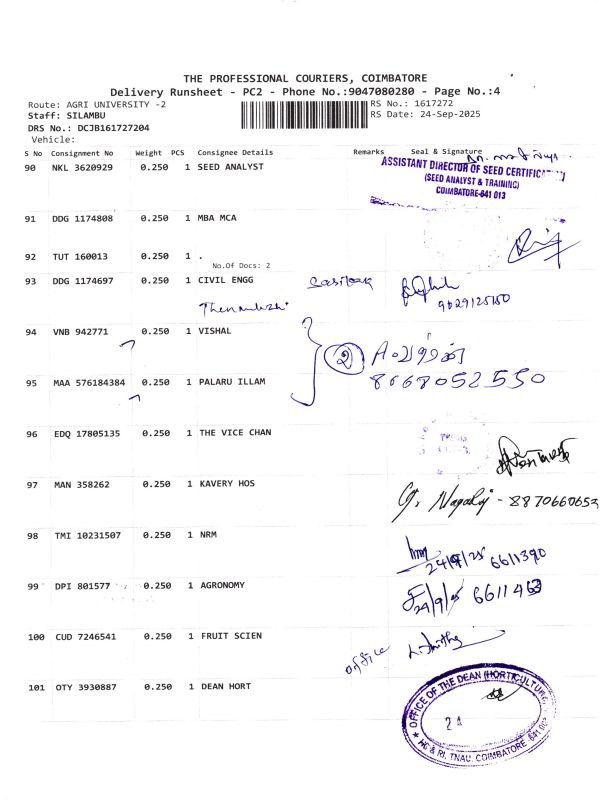 THE PROFESSIONAL COURIERS, COIMBATORE
Delivery Runsheet - PC2 - Phone No.:9047080280 - Page No.:4
Route: AGRI UNIVERSITY -2 RS No.: 1617272
Staff: SILAMBU RS Date: 24-Sep-2025
DRS No.: DCJB161727204
Vehicle:
S No Consignment No Weight PCS Consignee Details Remarks Seal & Signature
90 NKL 3620929 0.250 1 SEED ANALYST
ASSISTANT DIRECTOR OF SEED CERTIFICATION
(SEED ANALYST & TRAINING)
COIMBATORE-641 013
91 DDG 1174808 0.250 1 MBA MCA
92 TUT 160013 0.250 1 .
No.Of Docs: 2
93 DDG 1174697 0.250 1 CIVIL ENGG
94 VNB 942771 0.250 1 VISHAL
2
8668052550
95 MAA 576184384 0.250 1 PALARU ILLAM
96 EDQ 17805135 0.250 1 THE VICE CHAN
97 MAN 358262 0.250 1 KAVERY HOS
G. Nagaraj - 8870660653
98 TMI 10231507 0.250 1 NRM
24/9/25 6611390
99 DPI 801577 0.250 1 AGRONOMY
24/9/25 6611463
100 CUD 7246541 0.250 1 FRUIT SCIEN
office
101 OTY 3930887 0.250 1 DEAN HORT
OFFICE OF THE DEAN (HORTICULTURE)
24
HC & RI, TNAU, COIMBATORE - 641 003